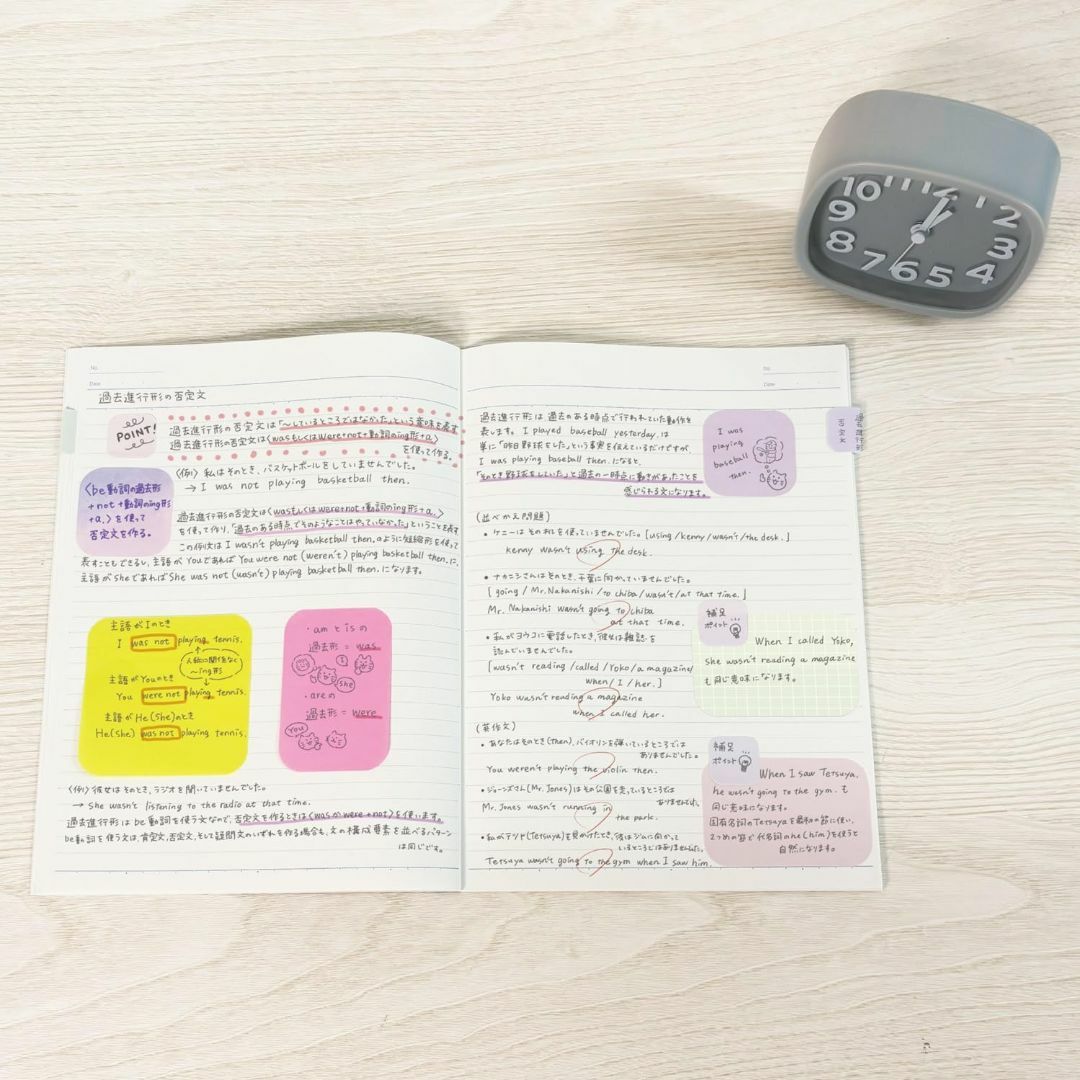 10 11 12 1 2
9 3
8 4
7 6 5
No.
Date
過去進行形の否定文
POINT!
過去進行形の否定文は「〜しているところではなかった」という意味を表す
過去進行形の否定文は〈wasもしくはwere+not+動詞のing形+α.〉
を使って作る。
〈be動詞の過去形
+not+動詞のing形
+α.〉を使って
否定文を作る。
〈例〉私はそのとき、バスケットボールをしていませんでした。
→ I was not playing basketball then.
過去進行形の否定文は〈wasもしくはwere+not+動詞のing形+α.〉
を使って作り、「過去のある時点でそのようなことはやっていなかった」ということを表す
この例文は I wasn't playing basketball then.のように短縮形を使って
表すこともできるし、主語が YouであればYou were not (weren't) playing basketball then.に、
主語が SheであればShe was not (wasn't) playing basketball then.になります。
主語がIのとき
I was not playing tennis.
人称に関係なく
〜ing形
主語がYouのとき
You were not playing tennis.
主語が He(She)のとき
He(She) was not playing tennis.
・amとisの
過去形 = was
I
she
・areの
過去形 = were
You
〈例〉彼女はそのとき、ラジオを聞いていませんでした。
→ She wasn't listening to the radio at that time.
過去進行形は be動詞を使う文なので、否定文を作るときは〈wasかwere+not〉を使います。
be動詞を使う文は、肯定文、否定文、そして疑問文のいずれを作る場合も、文の構成要素を並べるパターン
は同じです。
No.
Date
過去進行形は過去のある時点で行われていた動作を
表します。I played baseball yesterday.は
単に「昨日野球をした」という事実を伝えているだけですが、
I was playing baseball then.になると、
「そのとき野球をしていた」と過去の一時点に動きがあったことを
感じられる文になります。
I was
playing
baseball
then.
過去進行形
否定文
(並べかえ問題)
• ケニーはその机を使っていませんでした。[using/kenny/wasn't/the desk.]
kenny wasn't using the desk.
• ナカニシさんはそのとき、千葉に向かっていませんでした。
[going / Mr. Nakanishi /to chiba/wasn't/at that time.]
Mr. Nakanishi wasn't going to chiba
at that time.
• 私がヨウコに電話したとき、彼女は雑誌を
読んでいませんでした。
[wasn't reading /called /Yoko/a magazine/
when/I/her.]
Yoko wasn't reading a magazine
when I called her.
補足
ポイント
When I called Yoko,
she wasn't reading a magazine
も同じ意味になります。
(英作文)
• あなたはそのとき(then)、バイオリンを弾いているところでは
ありませんでした。
You weren't playing the violin then.
• ジョーンズさん(Mr. Jones)はその公園を走っているところでは
ありませんでした。
Mr. Jones wasn't running in
the park.
• 私がテツヤ(Tetsuya)を見かけたとき、彼はジムに向かって
いるところではありませんでした。
Tetsuya wasn't going to the gym when I saw him.
補足
ポイント
When I saw Tetsuya,
he wasn't going to the gym. も
同じ意味になります。
固有名詞のTetsuyaを最初の節に使い、
2つめの節で代名詞のhe(him)を使うと
自然になります。